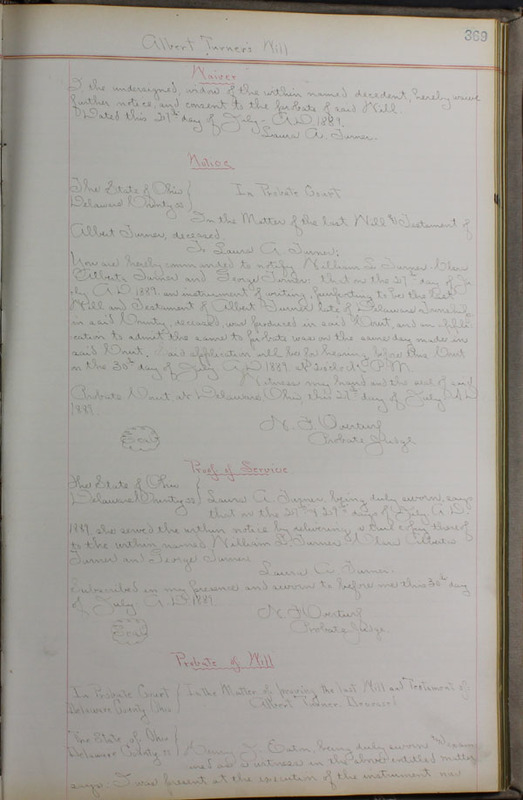 369
Albert Turner's Will
Waiver
I the undersigned, widow of the within named decedent, hereby waive
further notice, and consent to the probate of said Will.
Dated this 27th day of July A.D. 1889.
Laura A. Turner.
Notice
The State of Ohio
Delaware County ss
In Probate Court
In the Matter of the last Will & Testament of
Albert Turner, deceased.
To Laura A. Turner:
You are hereby commanded to notify William L. Turner, Clara
Alberta Turner and George Turner that on the 27th day of Ju-
ly A.D. 1889, an instrument of writing, purporting to be the last
Will and Testament of Albert Turner late of Delaware Township
in said County, deceased, was produced in said Court, and an appli-
cation to admit the same to probate was on the same day made in
said Court. Said application will be for hearing before the Court
on the 30th day of July A.D. 1889 at 2 o'clock P.M.
Witness my hand and the seal of said
Probate Court, at Delaware Ohio, this 27th day of July A.D.
1889.
N. F. Overturf
Probate Judge
Seal
Proof of Service
The State of Ohio
Delaware County ss
Laura A. Turner being duly sworn, says
that on the 27th & 29th days of July A.D.
1889, she served the within notice by delivering a true copy thereof
to the within named William L. Turner Clara Alberta
Turner and George Turner
Laura A. Turner.
Subscribed in my presence and sworn to before me this 30th day
of July A.D. 1889
N. F. Overturf
Probate Judge
Seal
Probate of Will
In Probate Court
Delaware County Ohio
In the Matter of proving the last Will and Testament of
Albert Turner Deceased
The State of Ohio
Delaware County ss
Henry J. Eaton being duly sworn
as a witness in the above entitled matter
says: I was present at the execution of the instrument now